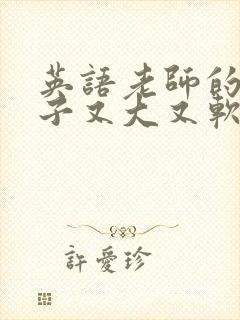 英語老師的
子又大又軟
許愛珍